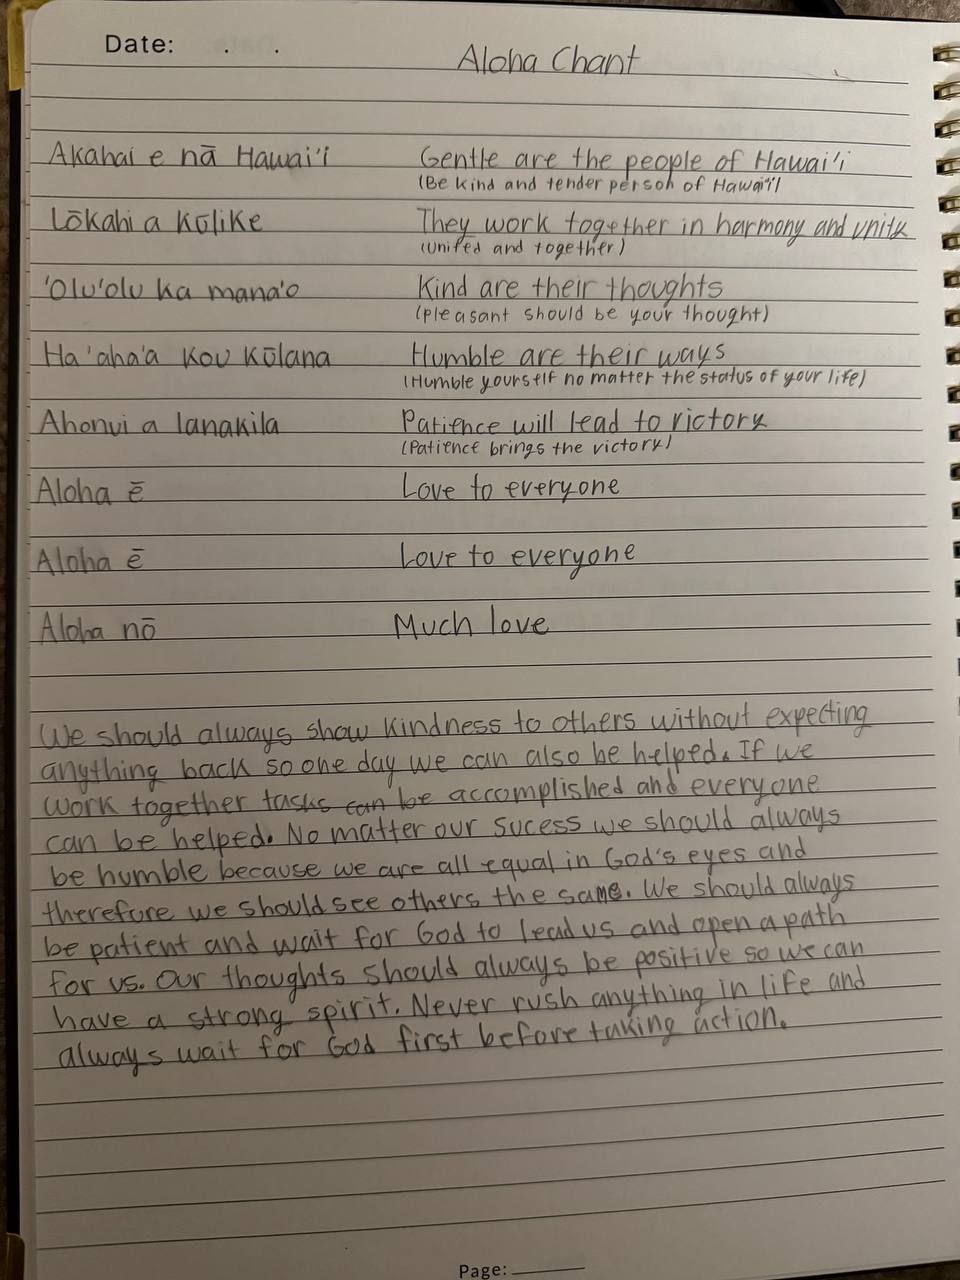 Date: . .
Aloha Chant
Akahai e nā Hawai'i Gentle are the people of Hawai'i
(Be kind and tender person of Hawai'i)
Lōkahi a Kūlike They work together in harmony and unity
(united and together)
'Olu'olu ka mana'o Kind are their thoughts
(pleasant should be your thought)
Ha'aha'a Kou Kūlana Humble are their ways
(Humble yourself no matter the status of your life)
Ahonui a lanakila Patience will lead to victory
(Patience brings the victory)
Aloha ē Love to everyone
Aloha ē Love to everyone
Aloha nō Much love
We should always show kindness to others without expecting
anything back so one day we can also be helped. If we
work together tasks can be accomplished and everyone
can be helped. No matter our sucess we should always
be humble because we are all equal in God's eyes and
therefore we should see others the same. We should always
be patient and wait for God to lead us and open a path
for us. Our thoughts should always be positive so we can
have a strong spirit. Never rush anything in life and
always wait for God first before taking action.
Page: